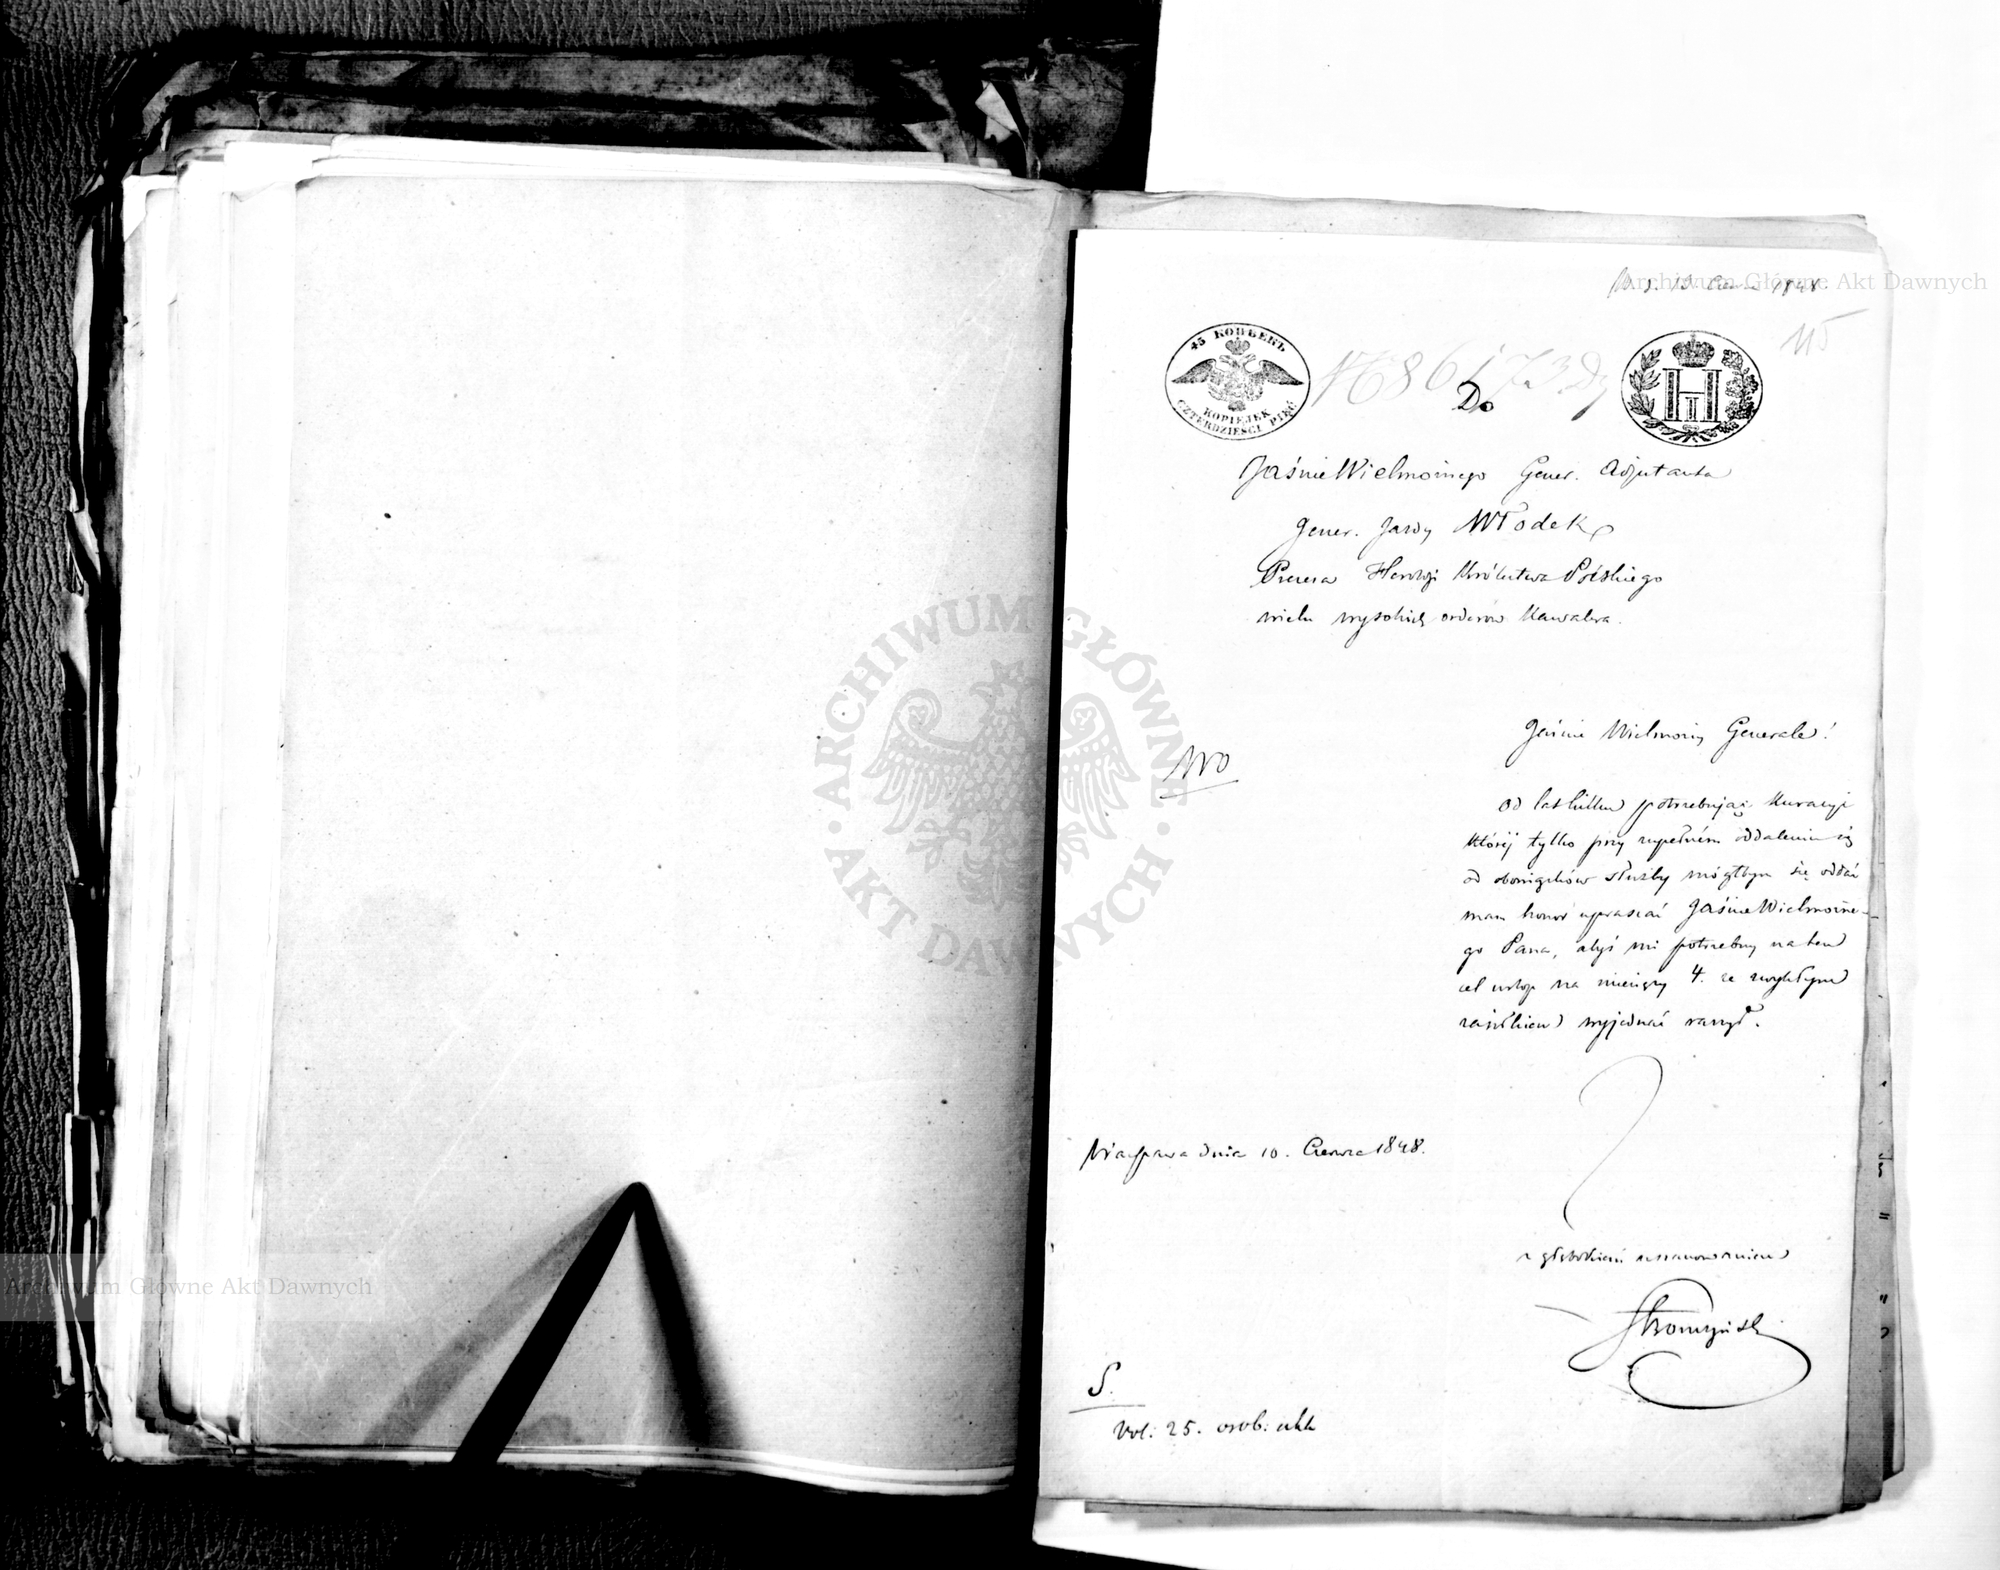 1848
115
45 КОПѢЕКЪ
KOPIEJEK
CZTERDZIESCI PIĘĆ
№ 86173
Do
H II
JaśnieWielmożnego Gener. Adjutanta
Gener. Jazdy Włodek
Prezesa Heroldji Królestwa Polskiego
wielu wysokich orderów Kawalera.
Jaśnie Wielmożny Generale!
Od lat kilku potrzebując Kuracyi
Której tylko przy zupełném oddaleniu się
od obowiązków służby mógłbym się oddać
mam honor upraszać JaśnieWielmożne-
go Pana, abyś mi potrzebny na ten
cel urlop na miesięcy 4. ze zwykłym
zasiłkiem wyjednać raczył.
Warszawa dnia 10. Czerwca 1848.
z głębokiém uszanowaniem
Stronczyński
S.
Vol: 25. osob: akt
ARCHIWUM GŁÓWNE AKT DAWNYCH
Archiwum Główne Akt Dawnych
Archiwum Główne Akt Dawnych